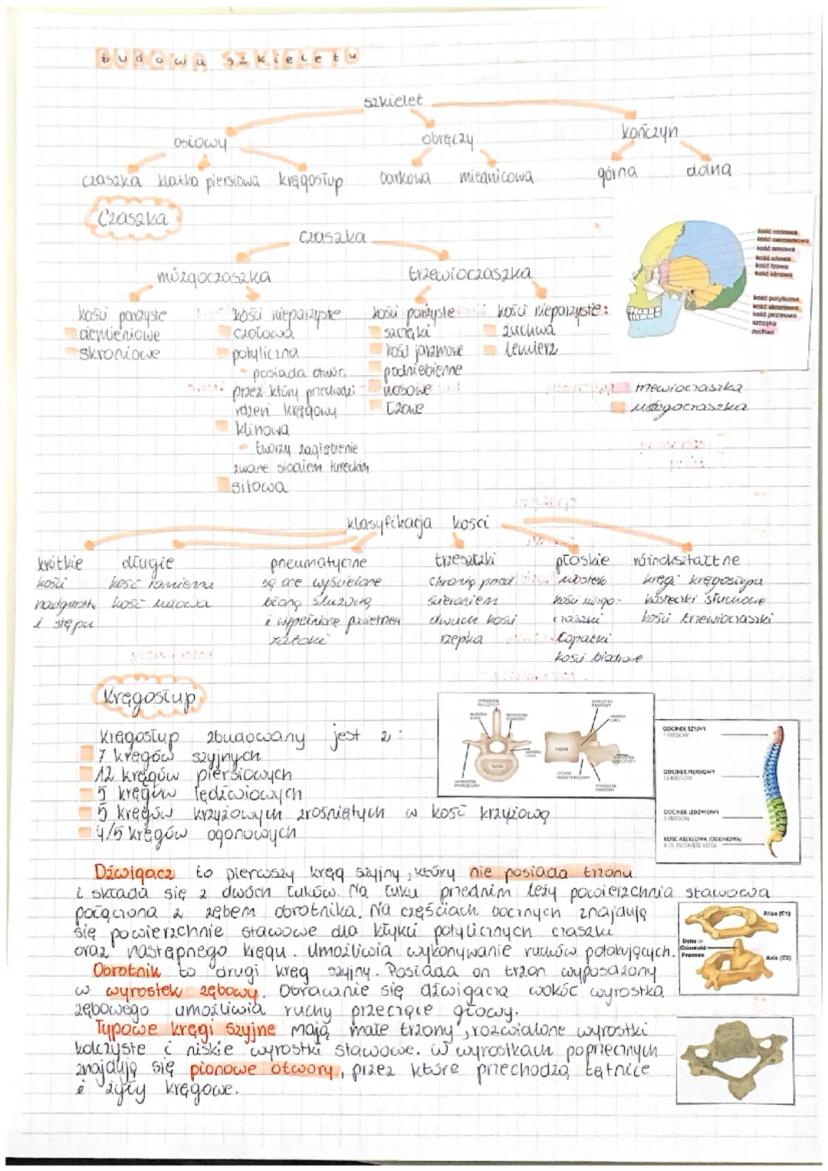 budowa szkieletu
szkielet
osiowy obręczy kończyn
czaszka klatka piersiowa kręgosłup barkowa miednicowa górna dolna
Czaszka
czaszka
mózgoczaszka trzewioczaszka
kości parzyste
ciemieniowe
skroniowe
kości nieparzyste
czołowa
potyliczna
posiada otwór,
przez który przechodzi
rdzeń kręgowy
klinowa
tworzy zagłębienie
zwane siodłem tureckim
sitowa
kości parzyste
szczęki
kości jarzmowe
podniebienne
nosowe
łzowe
kości nieparzyste:
żuchwa
lemiesz
kość czołowa
kość ciemieniowa
kość nosowa
kość sitowa
kość łzowa
kość klinowa
kość potyliczna
kość skroniowa
kość jarzmowa
szczęka
żuchwa
trzewioczaszka
mózgoczaszka
klasyfikacja kości
krótkie
kości
nadgarstka
i stępu
długie
kość ramienna
kość udowa
pneumatyczne
są one wyścielone
błoną śluzową
i wypełnione powietrzem
zatoki
trzeszczki
chronią przed
ścieraniem
dwóch kości
rzepka
płaskie
mostek
kości mózgo-
czaszki
łopatki
kości biodrowe
różnokształtne
kręgi kręgosłupa
kosteczki słuchowe
kości trzewioczaszki
Kręgosłup
Kręgosłup zbudowany jest z:
7 kręgów szyjnych
12 kręgów piersiowych
5 kręgów lędźwiowych
5 kręgów krzyżowych zrośniętych w kość krzyżową
4/5 kręgów ogonowych
ODCINEK SZYJNY
7 KRĘGÓW
ODCINEK PIERSIOWY
12 KRĘGÓW
ODCINEK LĘDŹWIOWY
5 KRĘGÓW
Dźwigacz to pierwszy kręg szyjny, który nie posiada trzonu
i składa się z dwóch łuków. Na łuku przednim leży powierzchnia stawowa
połączona z zębem obrotnika. Na częściach bocznych znajdują
się powierzchnie stawowe dla kłykci potylicznych czaszki
oraz następnego kręgu. Umożliwia wykonywanie ruchów potakujących.
Obrotnik to drugi kręg szyjny. Posiada on trzon wyposażony
w wyrostek zębowy. Obracanie się dźwigacza wokół wyrostka
zębowego umożliwia ruchy przeczące głowy.
Typowe kręgi szyjne mają małe trzony, rozwidlone wyrostki
kolczyste i niskie wyrostki stawowe. W wyrostkach poprzecznych
znajdują się pionowe otwory, przez które przechodzą tętnice
i żyły kręgowe.
Atlas (C1)
Dens or
Odontoid
Process
Axis (C2)